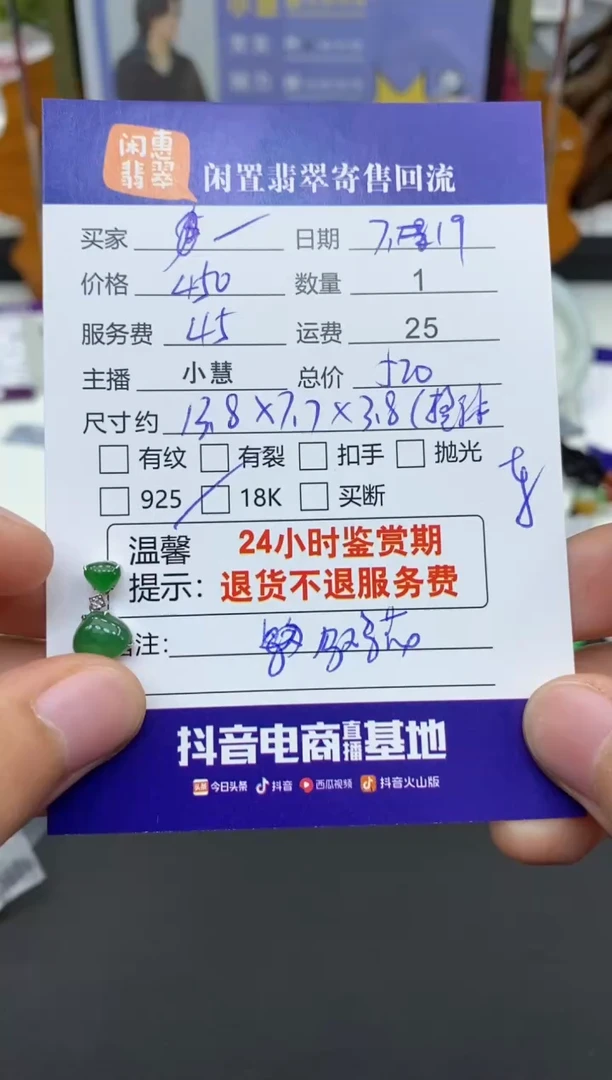 闲惠
翡翠
闲置翡翠寄售回流
买家 日期 7,19
价格 450 数量 1
服务费 45 运费 25
主播 小慧 总价 520
尺寸约 13.8×7.7×3.8(
有纹 有裂 扣手 抛光
925 18K 买断
温馨 24小时鉴赏期
提示: 退货不退服务费
注:
抖音电商直播基地
头条 今日头条 抖音 西瓜视频 抖音火山版